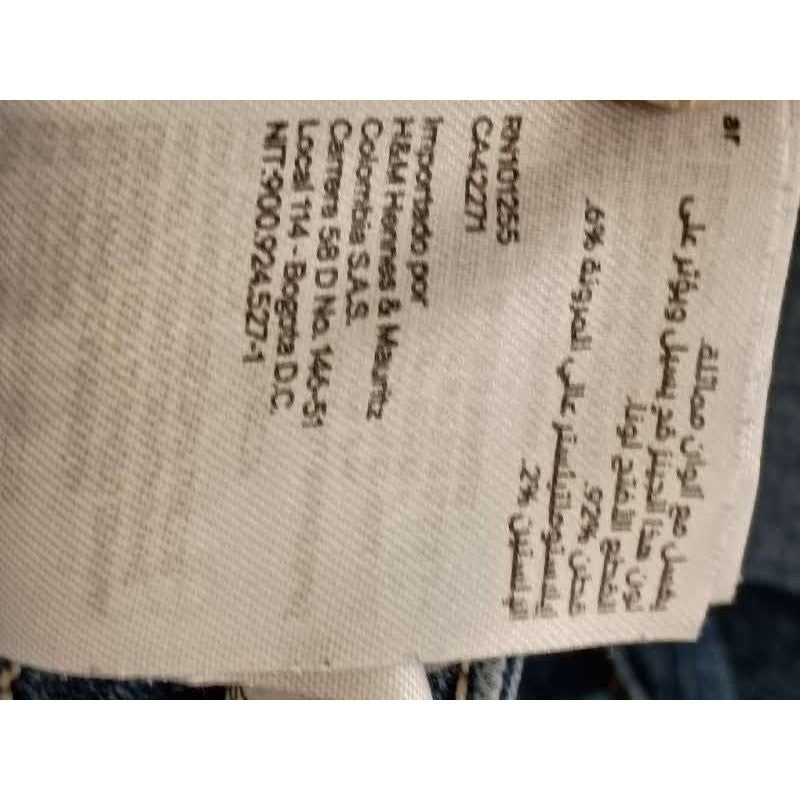 ar
يغسل مع ألوان مماثلة.
لون هذا الجينز قد يسيل ويؤثر على
القطع الأفتح لونا.
قطن 92%.
إيلاستوملتيباستر عالي المرونة 6%.
إلاستين 2%.
RN101255
CA42271
Importado por
H&M Hennes & Mauritz
Colombia S.A.S.
Carrera 58 D No. 146-51
Local 114 - Bogota D.C.
NIT:900.924.527-1